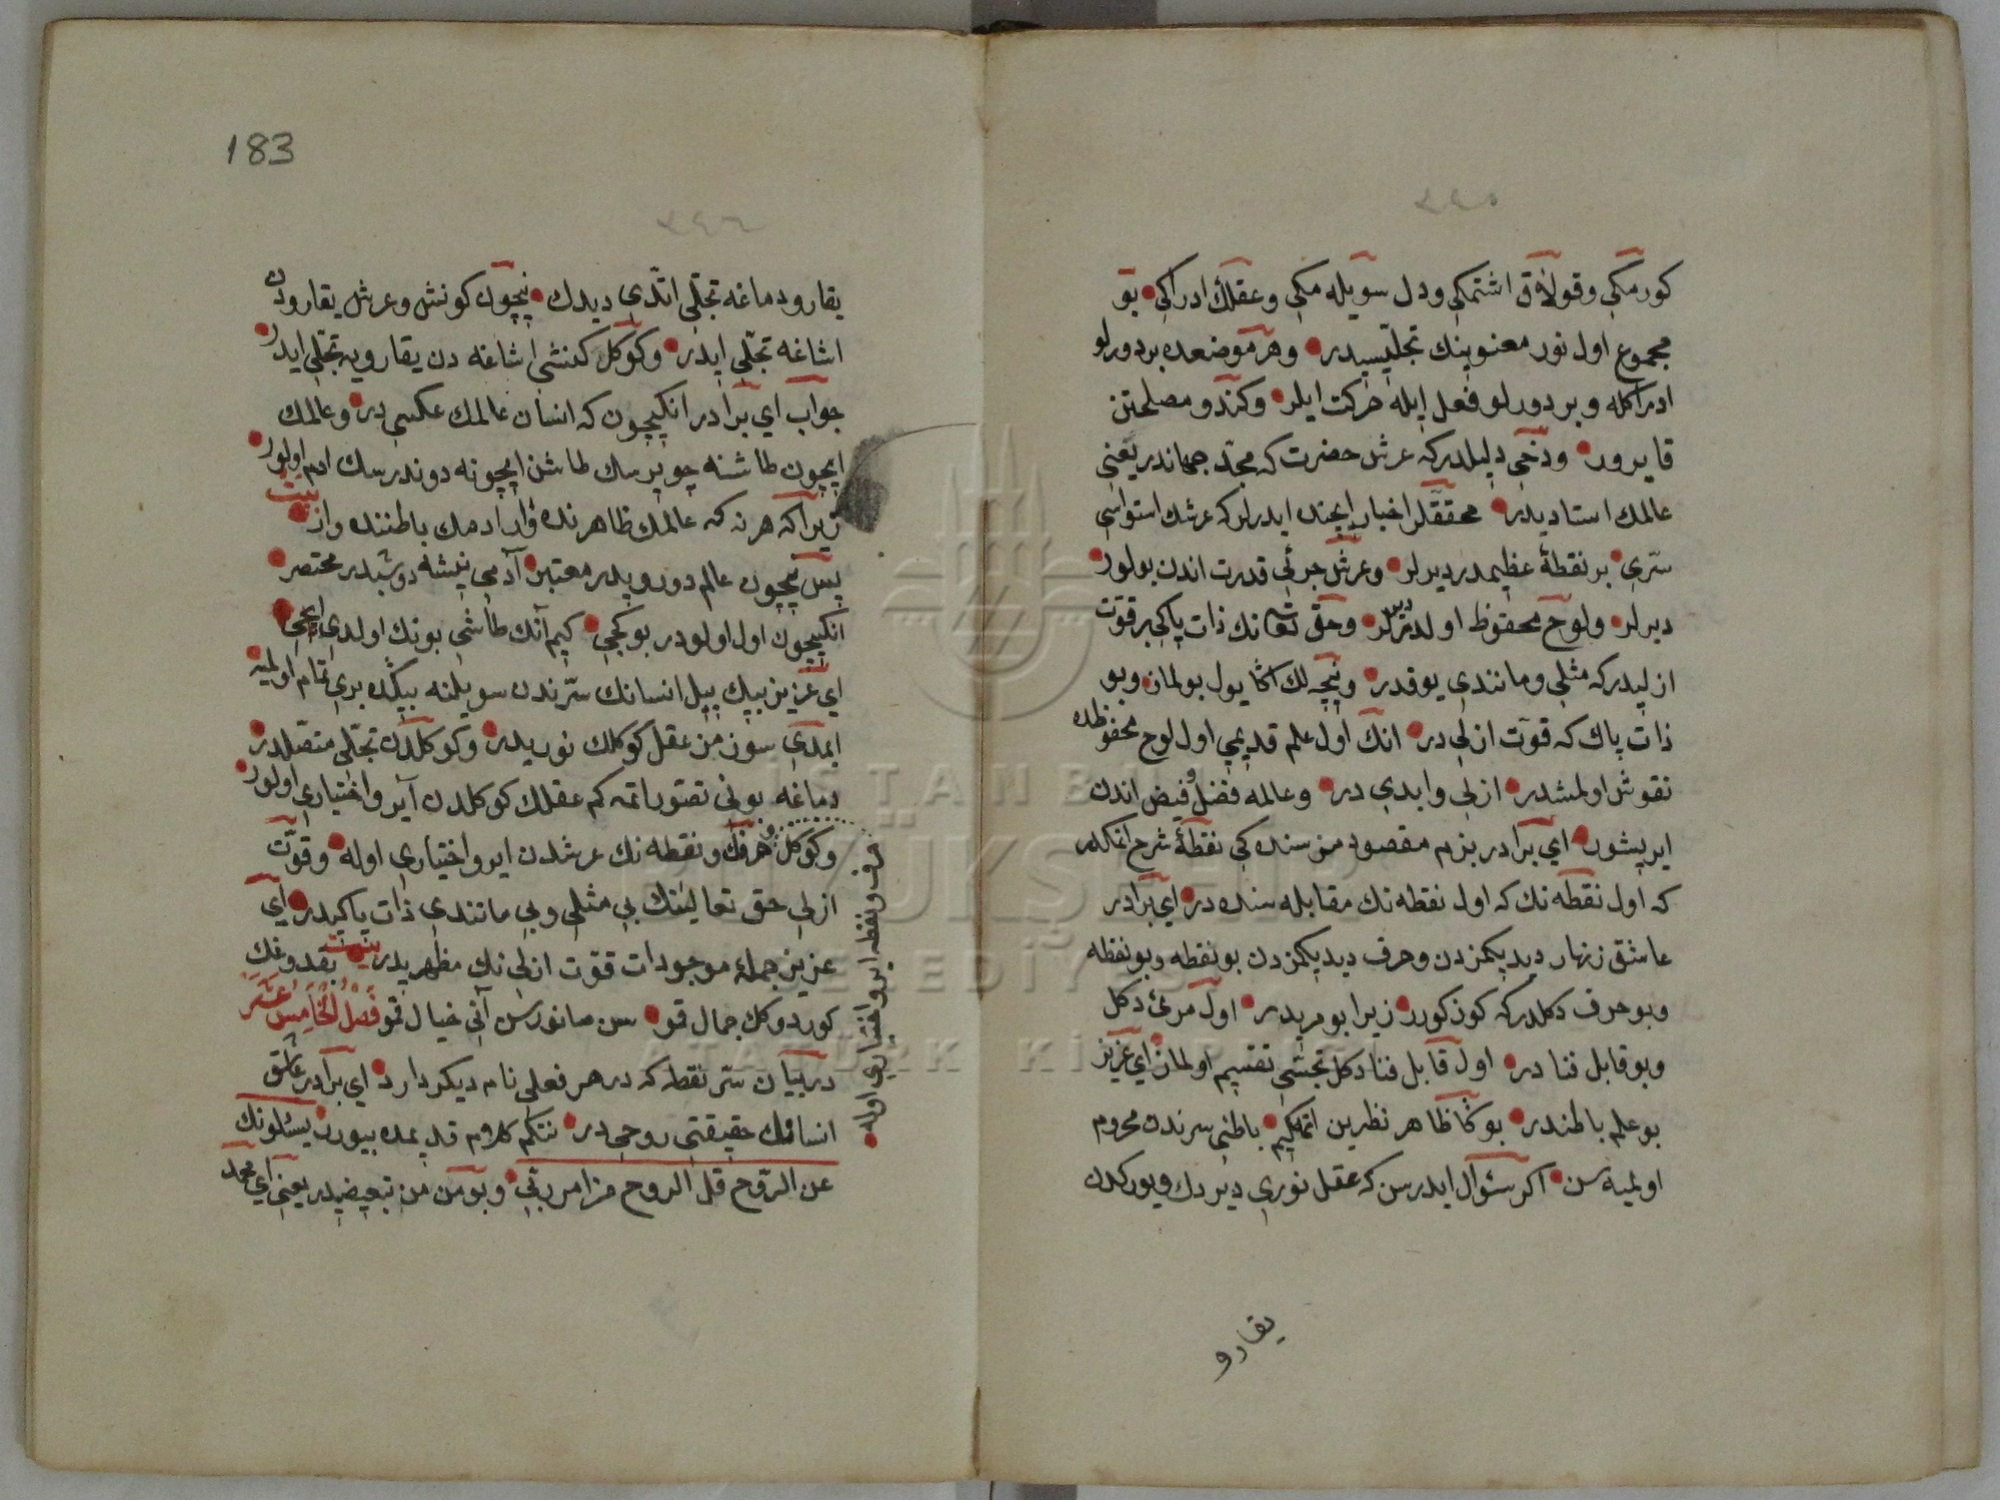 كورمكي وقولاق اشتمكي ودل سويله مكي وعقلك ادراكي بو
مجموع اول نور معنوينك تجلّيسيدر وهر موضعده بر دورلو
ادراكله وبر دورلو فعل ايله حركت ايلر وكندو مصلحتن
قايرور ودخي دليلدركه عرش حضرت كه محدّد جهاندر يعني
عالمك استاديدر محققلر اخبار ايچنده ايدرلر كه عرشك استواسي
سرّى بر نقطهٔ عظيمدر ديرلر وعرش جرئي قدرت اندن بولور
ديرلر ولوح محفوظ اولدر ديرلر وحق تعالى نك ذات پاكي بر قوّت
ازليدركه مثلي ومانندي يوقدر ونيچه لك اكا يول بولماز وبو
ذات پاك كه قوّت ازلي در انك اول علم قديمي اول لوح محفوظده
نقوش اولمشدر ازلي وابدي در وعالمه فضل وفيض اندن
ايريشور اي برادر بزم مقصودمز سنده كي نقطهٔ شرح اتمكدر
كه اول نقطه نك كه اول نقطه نك مقابله سنده در اي برادر
عاشق زنهار ديديكمزدن وحرف ديديكمزدن بو نقطه وبو نقطه
وبو حرف دكلدركه كوز كورر زيرا بو مريدر اول مرئ دكل
وبو قابل فنا در اول قابل فنا دكل تجشي تقسيم اولماز اي عزيز
بو علم باطندر بوكا ظاهر نظرين اتمكيم باطني سرندن محروم
اولميه سن اكر سئوال ايدرسن كه عقل نوري ديردك ويوركدن
يقارو
183
يقارو دماغه تجلّي اتدي ديدك نيچون كونش وعرش يقارودن
اشاغه تجلّي ايدر وكوكل كنشي اشاغه دن يقارويه تجلّي ايدر
جواب اي برادر انكيچون كه انسان عالمك عكسي در وعالمك
ايچون طاشنه چويرسك طاشن ايچونه دوندرسك ادم اولور
زيرا كه هر نه كه عالمك ظاهرنده وار ادمك باطننده وار بيت
پس نيچون عالم دورويدر معتبر آدمي نيشه دوشبدر مختصر
انكيچون اول اولودر بو كچي كيم آنك طاشي بونك اولدي ايچي
اي عزيز بيك ييل انسانك سرّندن سويلنه بيكده بري تمام اولميه
ايمدي سوزمز عقل كوكلك نوريدر وكوكلدن تجلّي متصلدر
دماغه بوني تصوّر اتمه كم عقلك كوكلدن آيرو اختياري اولور
وكوكل وحرفك ونقطه نك عرشدن ايرو اختياري اوله وقوّت
حرف ونقطه ايرو اختياري اوله
ازلي حق تعالينك بي مثلي وبي مانندي ذات پاكيدر اي
عزيز جملهٔ موجودات قوّت ازلي نك مظهريدر بيت بقدوغك
كوردوكك جمال قمو سن صانورسن آني خيال قمو فصل الخامس عشر
در بيان سرّ نقطه كه در هر فعلي نام ديكر دارد اي برادر عاشق
انسانك حقيقتي روحي در نتكم كلام قديمده بيورر يسئلونك
عن الرّوح قل الروح من امر ربّي وبو من من تبعيضيدر يعني اي محمد